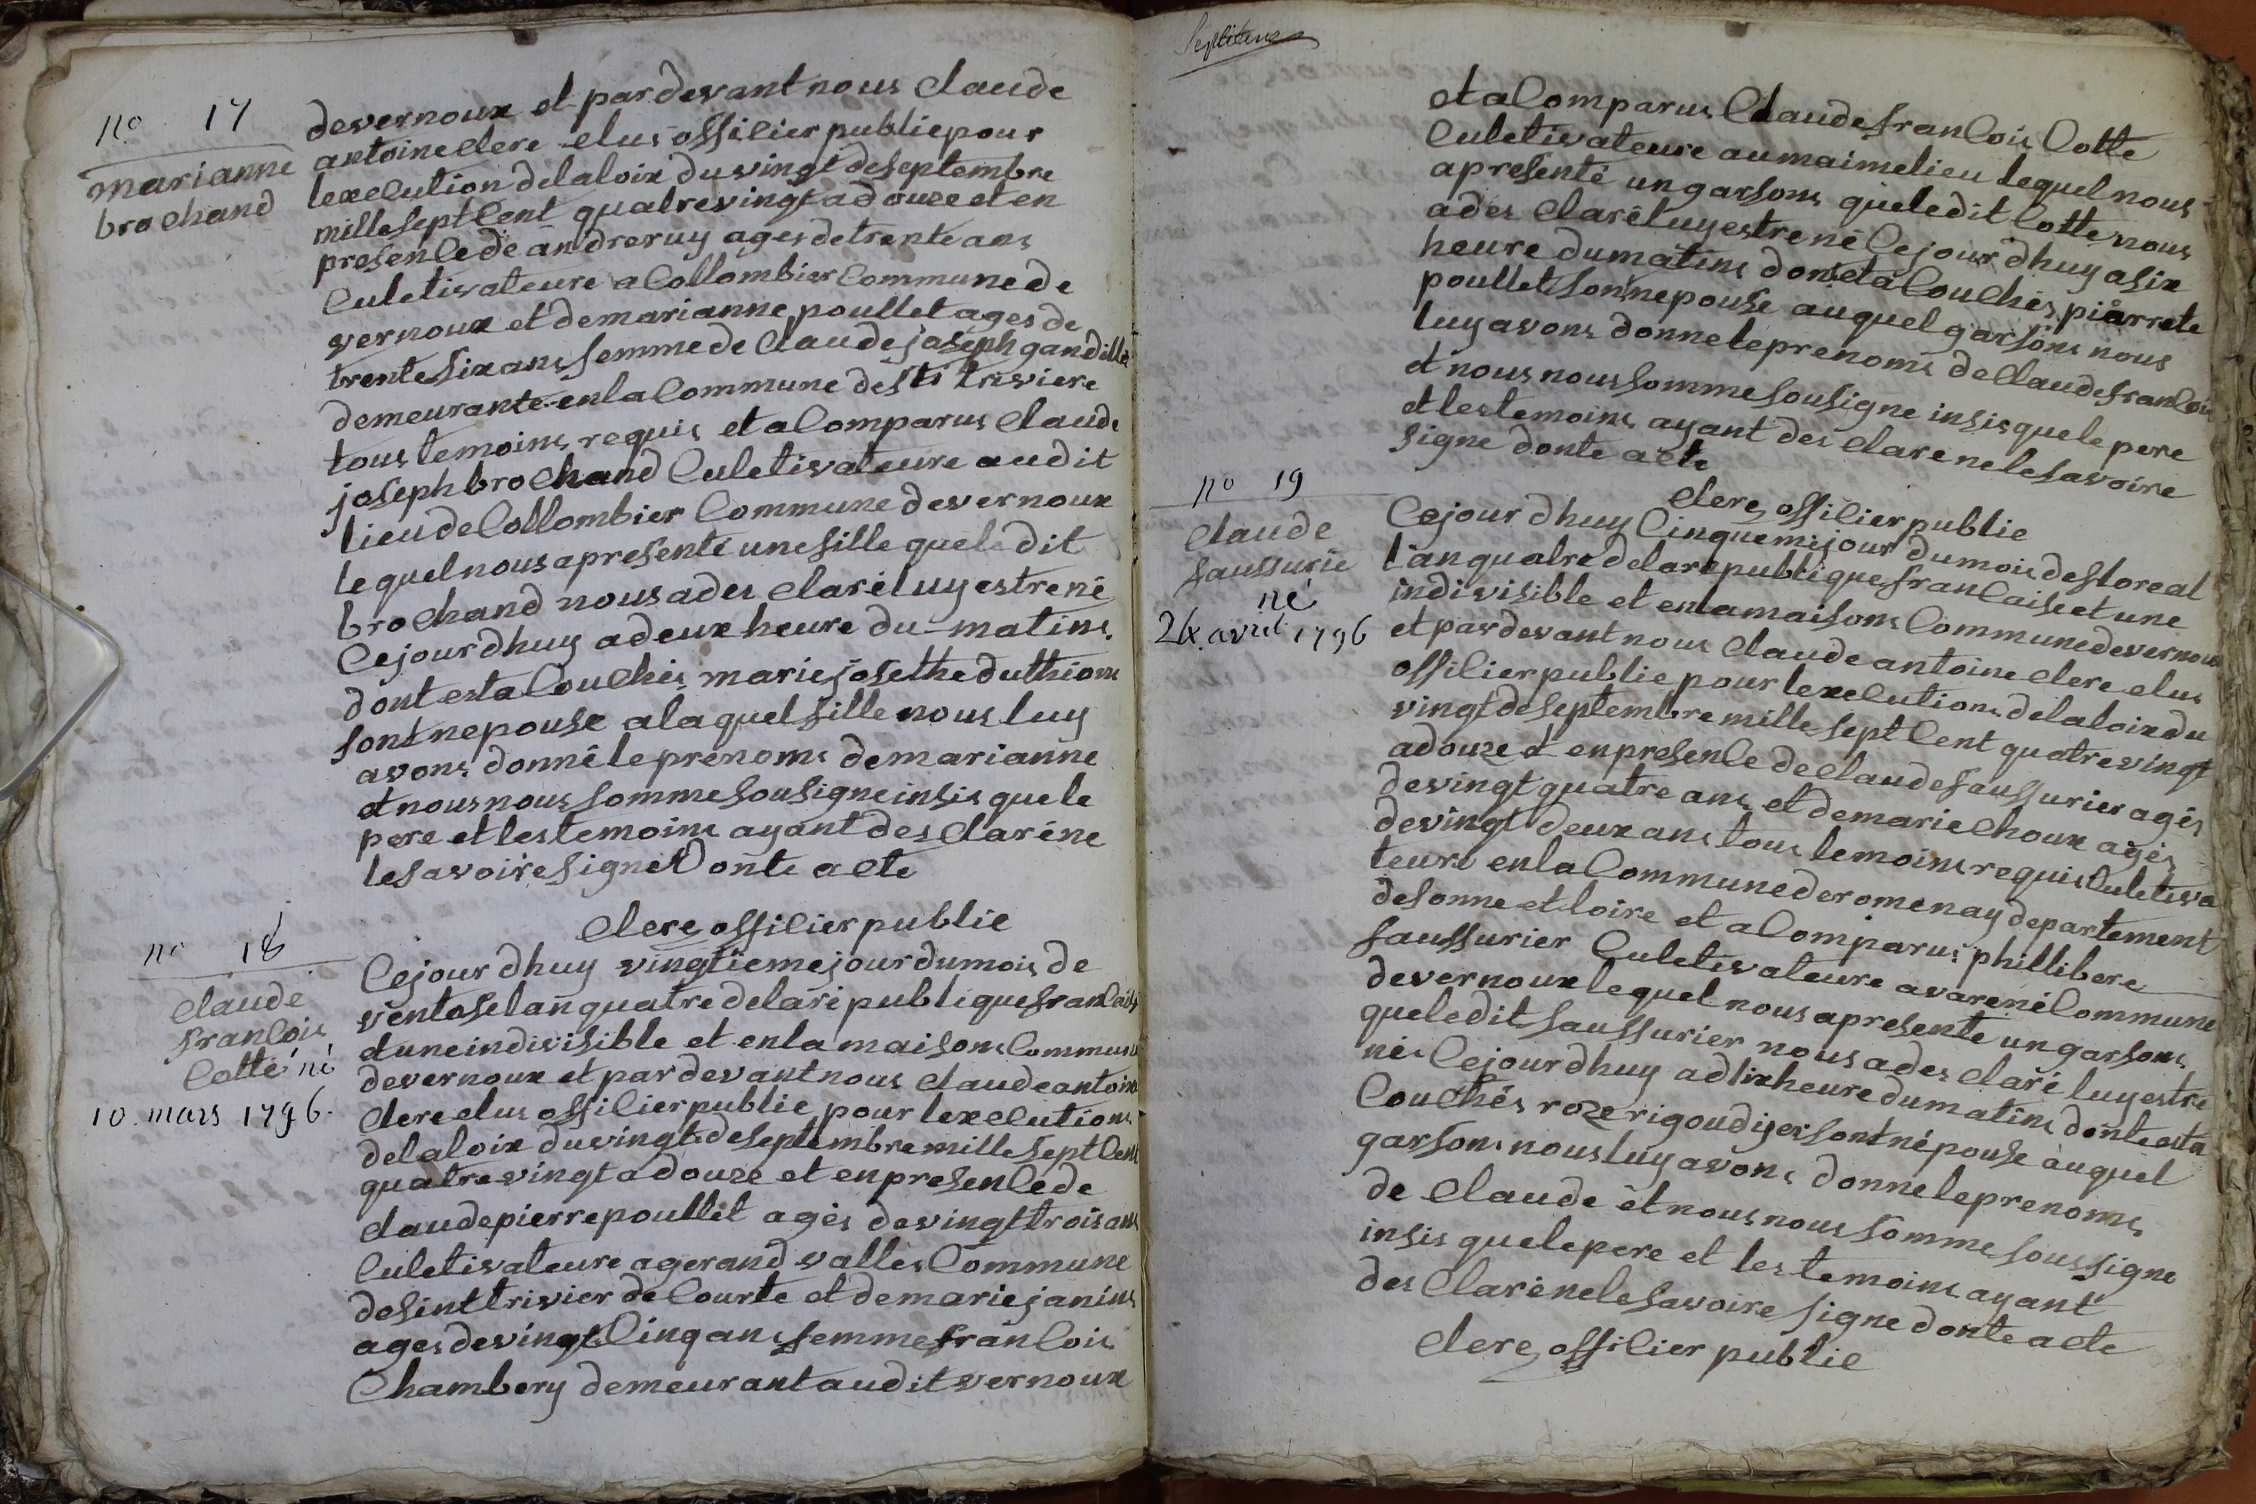 no 17
marianne
brochand
devernoux et pardevant nous Claude
antoine clere elus offilier publie pour
lexelution delaloix du vingt deseptembre
mille sept Cent quatrevingt adouze et en
presenle de andreruy ages detrente ans
Culetivateure a Collombier Commune de
vernoux et demarianne poullet ages de
trente six ans femme de Claude joseph gandillet
demeurante enla Commune de st triviere
tous temoins requis et a Comparus Claude
joseph brochand Culetivateure audit
lieu de Collombier Commune devernoux
lequel nous apresenté une fille queledit
brochand nous ades claré luy estre né
Cejourdhuy adeux heure du matins
dont esta Couchés marie josethe duthions
sont nepouse alaquel fille nous luy
avons donné le prenoms de marianne
et nous nous somme sousigne insis quele
pere et lestemoins ayant des claré ne
lesavoire signé Donte acte
Clere offilier publie
no 18
claude
franlois
Cotte né
10. mars 1796.
Cejourdhuy vingtiemejour dumois de
ventose lan quatre dela republique franlaise
et une indivisible et enla maisons Commune
devernoux et pardevant nous claude antoine
Clere elus offilier publie pour lexelutions
delaloix du vingt deseptembre mille sept Cent
quatrevingt adouze et en presenle de
claude pierre poullet agés devingt trois ans
Culetivateure agerand valles Commune
desint trivier de Courte et de marie janins
ages devingt Cinq ans femme franlois
Chambery demeurant audit vernoux
Septieme
et a Comparus Claude franlois Cotte
Culetivateure aumaimelieu lequel nous
apresenté un garsons queledit Cotte nous
ades claré luy estre né Cejourdhuy asix
heure dumatins dont esta Couchés piarrete
poullet sont nepouse auquel garsons nous
luy avons donne le prenoms de Claude franlois
et nous nous somme sousigne insis quele pere
et lestemoins ayant des clare nelesavoire
signe donte acte
Clere offilier publie
no 19
claude
faussurié
né
24. avril 1796
Cejourdhuy Cinquemejour dumois defloreal
lan quatre dela republique franlaise et une
indivisible et enla maisons Commune devernoux
et pardevant nous Claude antoine clere elus
offilier publie pour lexelutions delaloix du
vingt deseptembre mille sept Cent quatrevingt
adouze et en presenle de Claude faussurier agés
devingt quatre ans et de marie Choux agés
devingt deux ans tous temoins requis Culetiva
teure enla Commune deromenay departement
desonne et loire et a Comparus phillibere
faussurier Culetivateure avarené Commune
devernoux lequel nous apresente un garsons
queledit faussurier nous ades claré luy estre
nés Cejourdhuy adix heure dumatins donte esta
Couchés roze rigoudyer sont népouse auquel
garsons nous luy avons donne le prenoms
de Claude et nous nous somme soussigne
insis quele pere et les temoins ayant
des Claré nelesavoire signe donte acte
Clere offilier publie